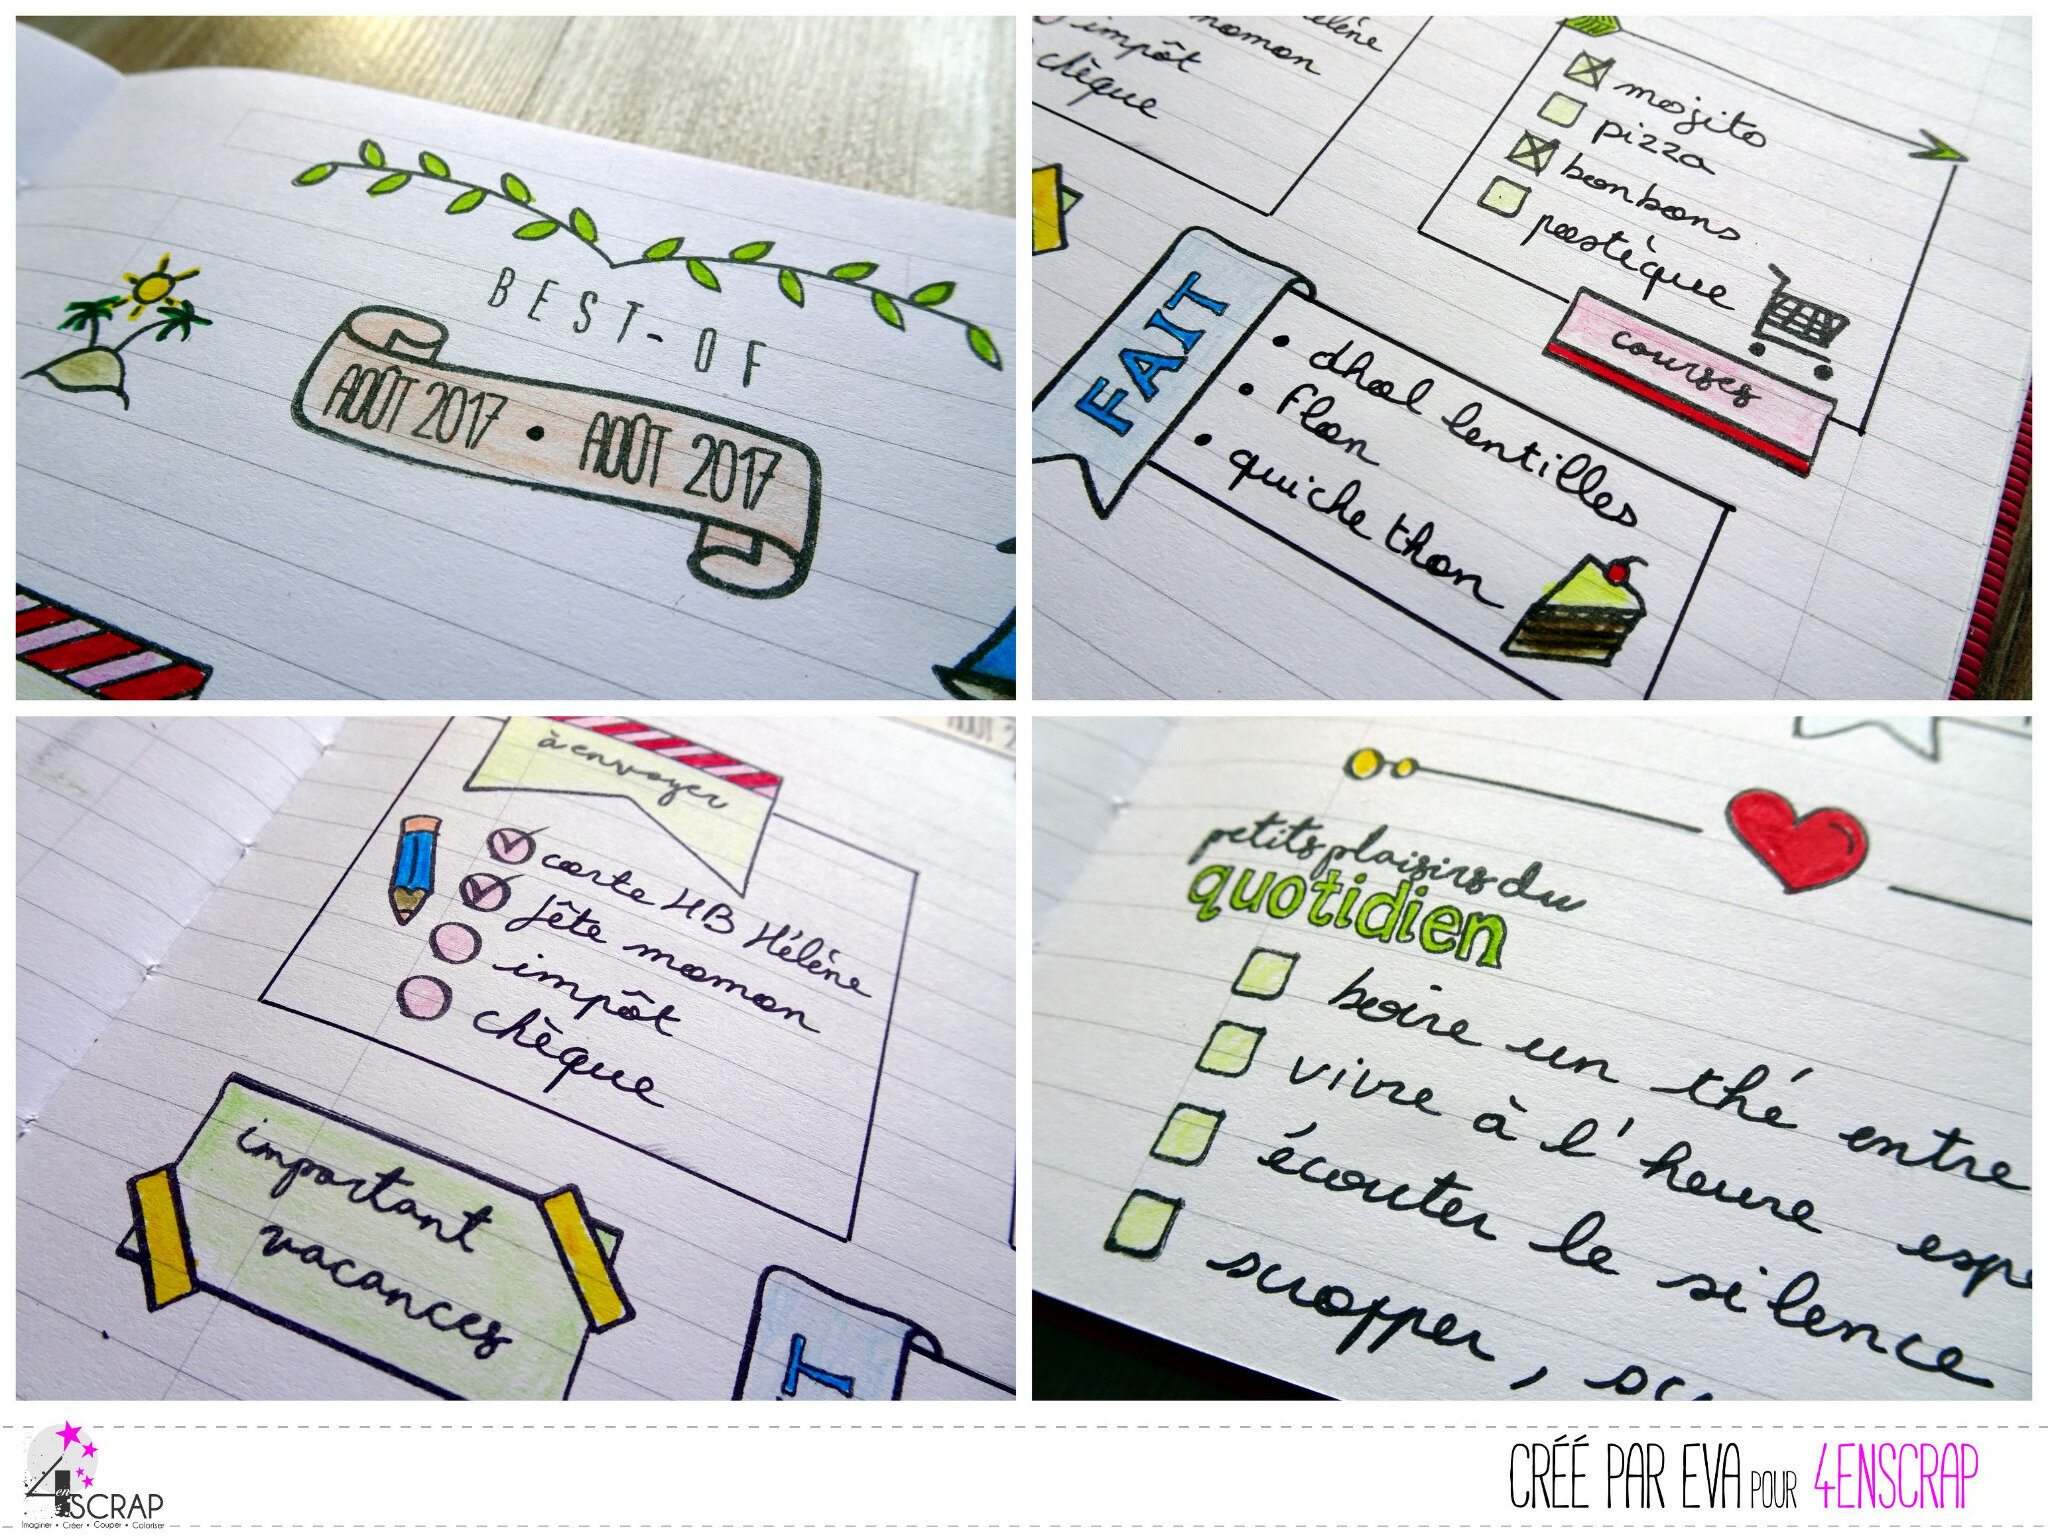 BEST-OF
AOÛT 2017 • AOÛT 2017
impôt
momon
chèque
mojito
pizza
bonbons
pastèque
courses
FAIT
• dhal lentilles
• flan
• quiche thon
à envoyer
AOÛT 2
carte HB Hélène
fête maman
impôt
chèque
important
vacances
petits plaisirs du
quotidien
boire un thé entre
vivre à l'heure esp
écouter le silence
scrapper, sc
4 en SCRAP
Imaginer • Créer • Couper • Coloriser
CRÉÉ PAR EVA POUR 4ENSCRAP